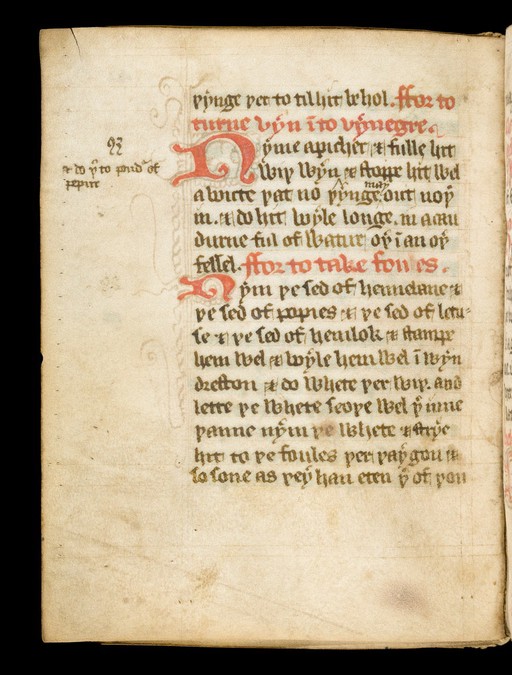 þynge þer to til hit be hol. ffor to
turne vẏn ī to vẏnegre.
Nẏme a picher & fulle hit
wiþ wẏn & stoppe hit wel
a bute þat no þẏnge maẏ out noþ
in. & do hit boẏle longe. in a cau
durne ful of watur oþ ī an oþ
fessel. ffor to take foules.
Nẏm þe sed of hennbane &
þe sed of popies & þe sed of letu-
se & þe sed of hemlok & stampe
hem wel & boẏle hem wel ī wẏn
dreston & do whete þer wiþ. and
lette þe whete seoþe wel þ inne
þanne nẏm þe whete & strẏe
hit to þe foules þer þaẏ gon &
so sone as þeẏ hau eten þ of þou
& do þ to poudˀ of
pepire